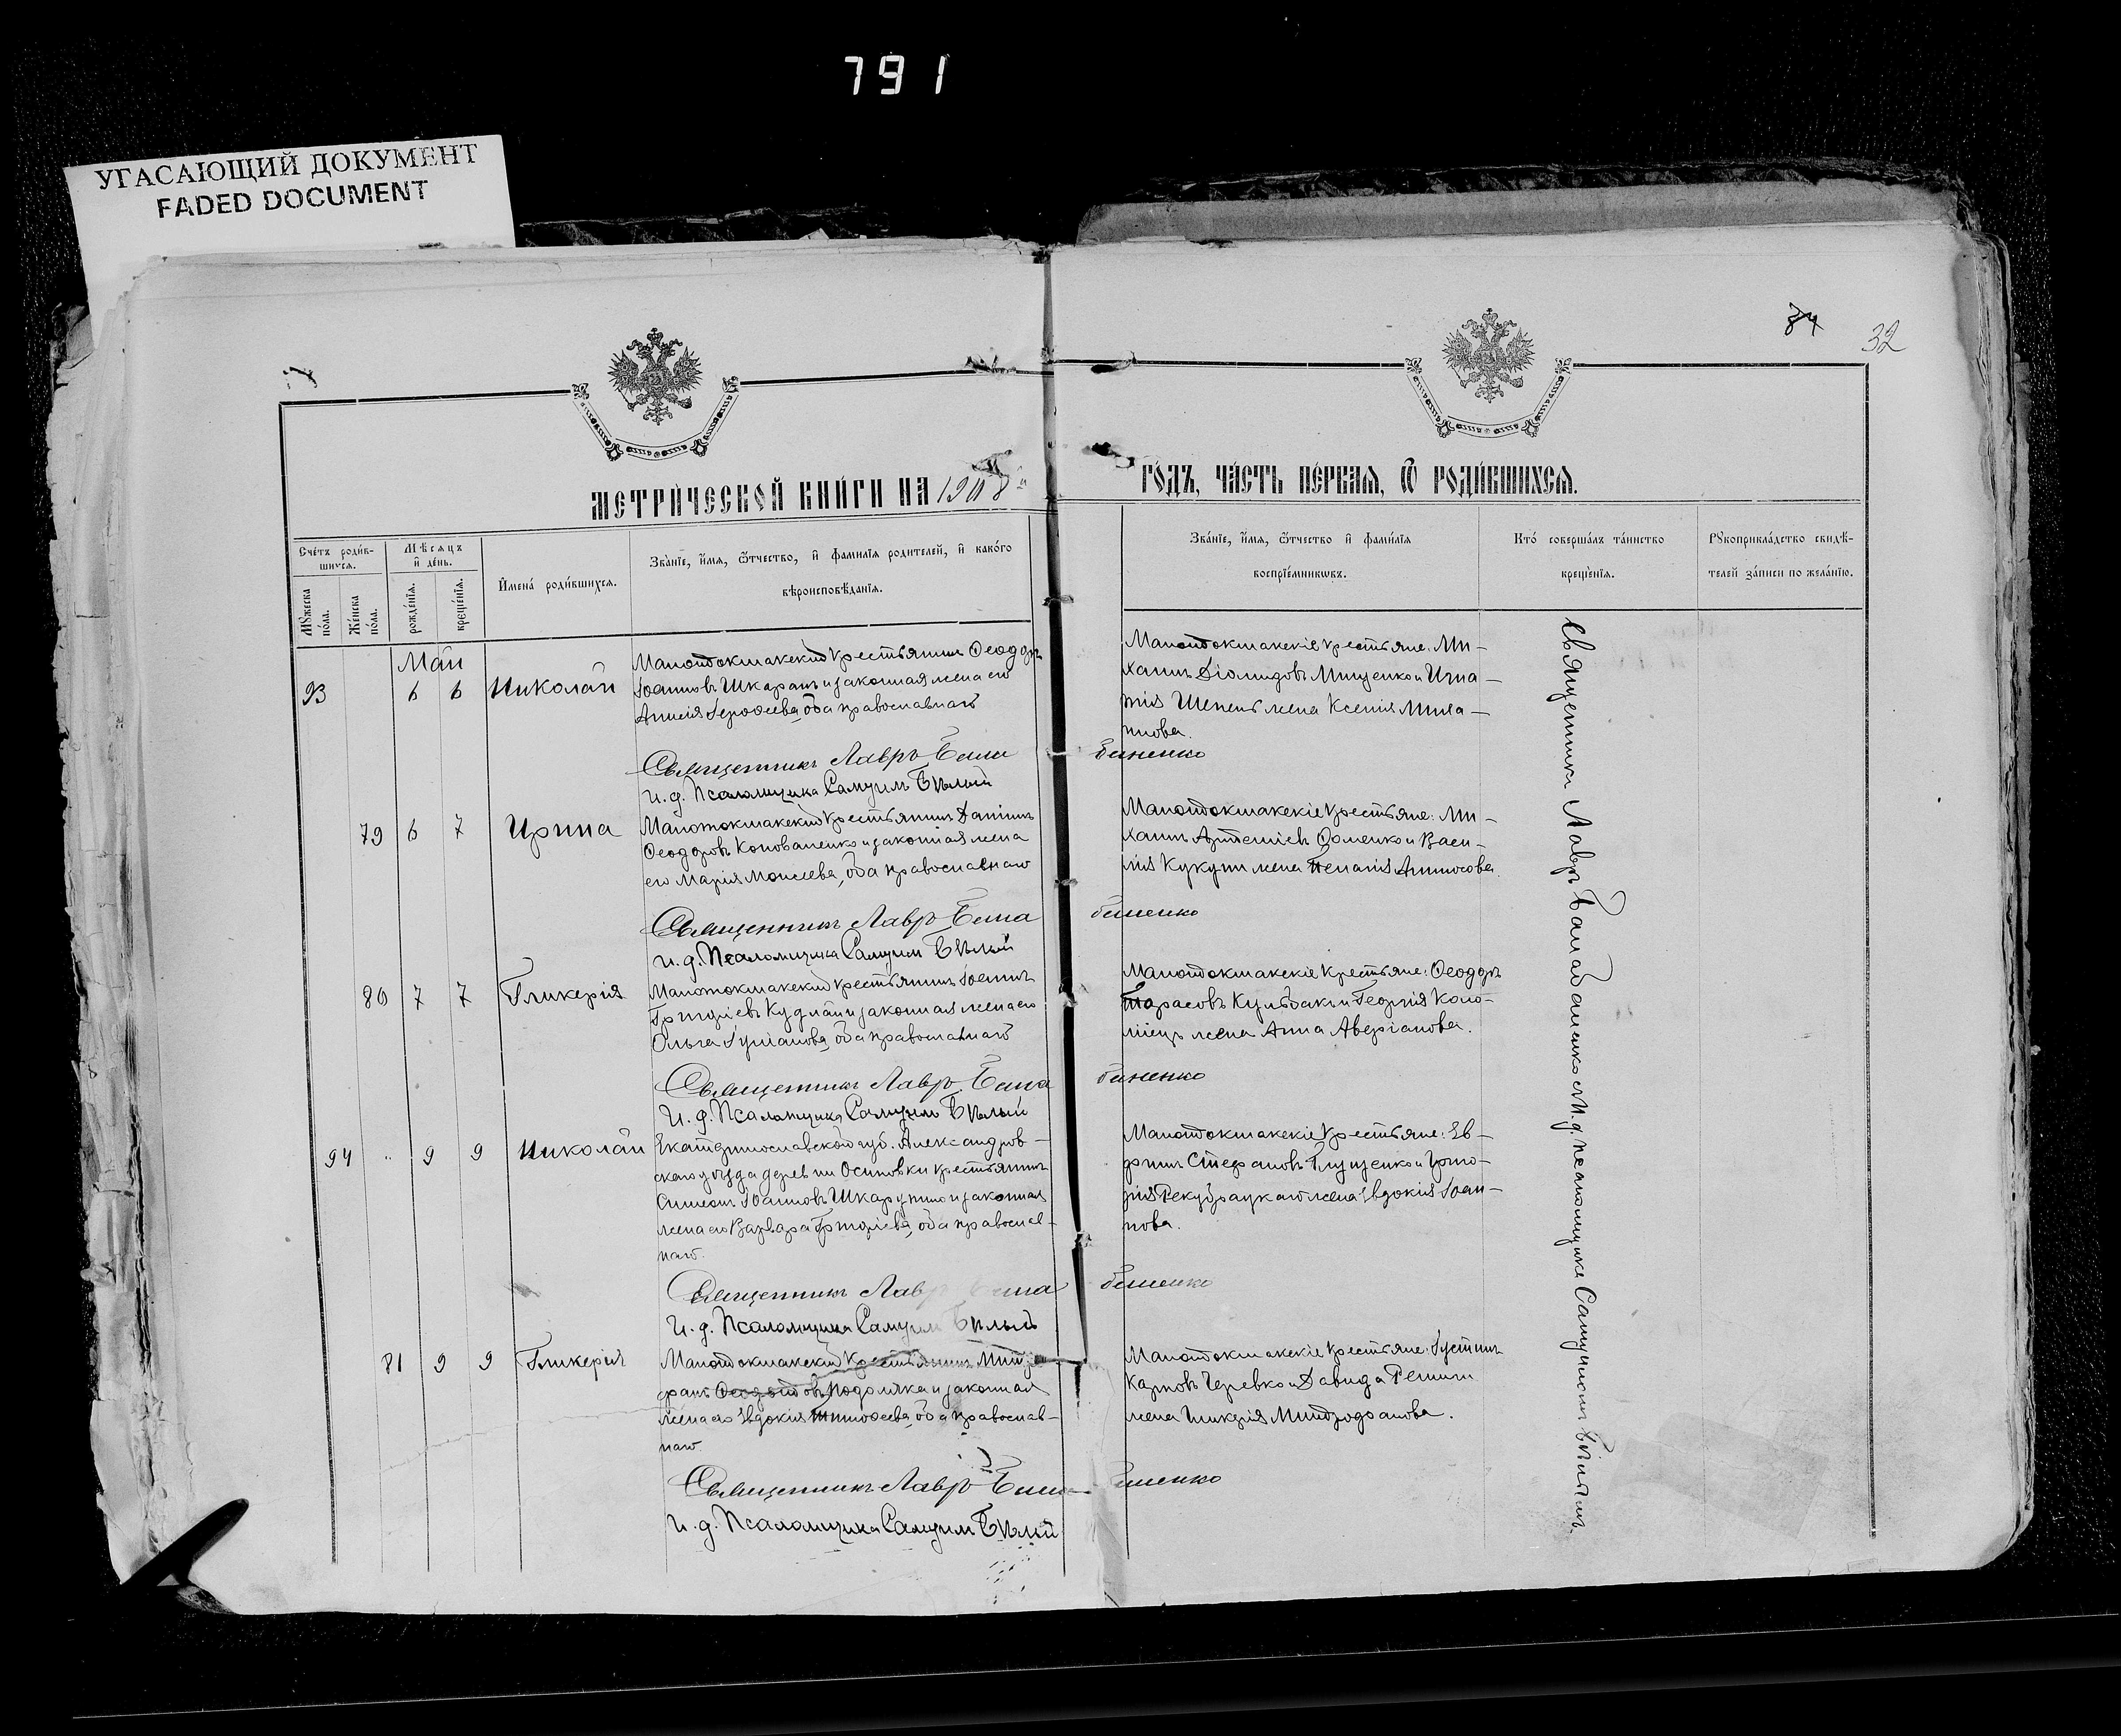 791
УГАСАЮЩИЙ ДОКУМЕНТ
FADED DOCUMENT
84
32
МЕТРИ́ЧЕСКОЙ КНИ́ГИ НА 1908 й
ГО́ДЪ, ЧА́СТЬ ПЕ́РВАѦ, Ѿ РОДИ́ВШИХСѦ.
Сче́тъ роди́в-
шихсѧ.
Мѣ́сѧцъ
и҆ де́нь.
Мꙋ́жеска по́ла.
Же́нска по́ла.
рожде́нїѧ.
креще́нїѧ.
И҆мена̀ роди́вшихсѧ.
Зва́нїе, и҆́мѧ, ѻ҆́тчество, и҆ фами́лїѧ роди́телей, и҆ како́гѡ
вѣроисповѣ́данїѧ.
Зва́нїе, и҆́мѧ, ѻ҆́тчество и҆ фами́лїѧ
воспрїе́мникѡвъ.
Кто̀ соверша́лъ та́инство
креще́нїѧ.
Рꙋкоприкла́дство свидѣ́-
телей за́писи по жела́нїю.
Май
93 6 6 Николай
Малотокмакскій крестьянинъ Ѳеодоръ
Іоанновъ Шкаранъ и законная жена его
Анисія Іероѳеева, оба православнаго
Малотокмакскіе крестьяне: Ми-
хаилъ Діомидовъ Мищенко и Игна-
тія Шепель жена Ксенія Мила-
нова.
Священникъ Лавръ Балабаненко
И. д. Псаломщика Самуилъ Бѣлый
79 6 7 Ирина
Малотокмакскій крестьянинъ Даніилъ
Ѳеодоровъ Коноваленко и законная жена
его Марія Моисеева, оба православнаго
Малотокмакскіе крестьяне: Ми-
хаилъ Артеміевъ Ѳоменко и Васи-
лія Кукути жена Пелагія Аммосова.
Священникъ Лавръ Балабаненко
И. д. Псаломщика Самуилъ Бѣлый
80 7 7 Гликерія
Малотокмакскій крестьянинъ Іоаннъ
Григоріевъ Кудлай и законная жена его
Ольга Іуліанова, оба православнаго
Малотокмакскіе крестьяне: Ѳеодоръ
Тарасовъ Кульбакъ и Георгія Коло-
міецъ жена Анна Аверіанова.
Священникъ Лавръ Балабаненко
И. д. Псаломщика Самуилъ Бѣлый
94 " 9 9 Николай
Екатеринославской губ. Александров-
скаго уѣзда деревни Осиповки крестьянинъ
Симеонъ Іоанновъ Шкарупило и законная
жена его Варвара Григоріева, оба православ-
наго.
Малотокмакскіе крестьяне: Ев-
фимъ Стефановъ Глущенко и Григо-
рія Рекубрацкаго жена Евдокія Іоан-
нова.
Священникъ Лавръ Балабаненко
И. д. Псаломщика Самуилъ Бѣлый
81 9 9 Гликерія
Малотокмакскій крестьянинъ Митро-
фанъ Ѳеодотовъ Подоляка и законная
жена его Евдокія Тимоѳеева, оба православ-
наго.
Малотокмакскіе крестьяне: Іустинъ
Карповъ Черевко и Давида Репяги
жена Гликерія Митрофанова.
Священникъ Лавръ Балабаненко
И. д. Псаломщика Самуилъ Бѣлый
Священникъ Лавръ Балабаненко съ И. д. псаломщика Самуиломъ Бѣлымъ.